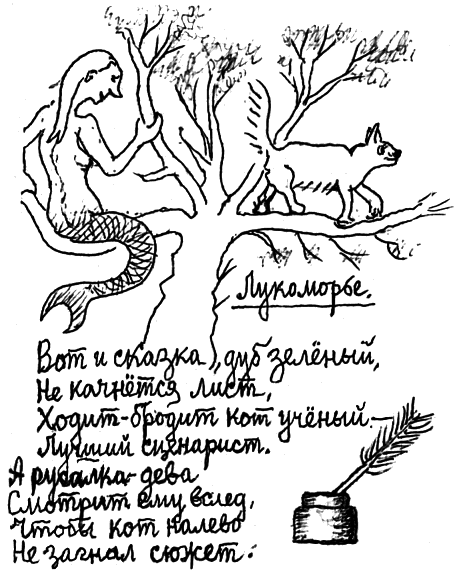 Лукоморье.
Вот и сказка, дуб зелёный,
Не качнётся лист,
Ходит-бродит кот учёный.—
Лучший сценарист.
А русалка-дева
Смотрит ему вслед,
Чтобы кот налево
Не загнал сюжет.